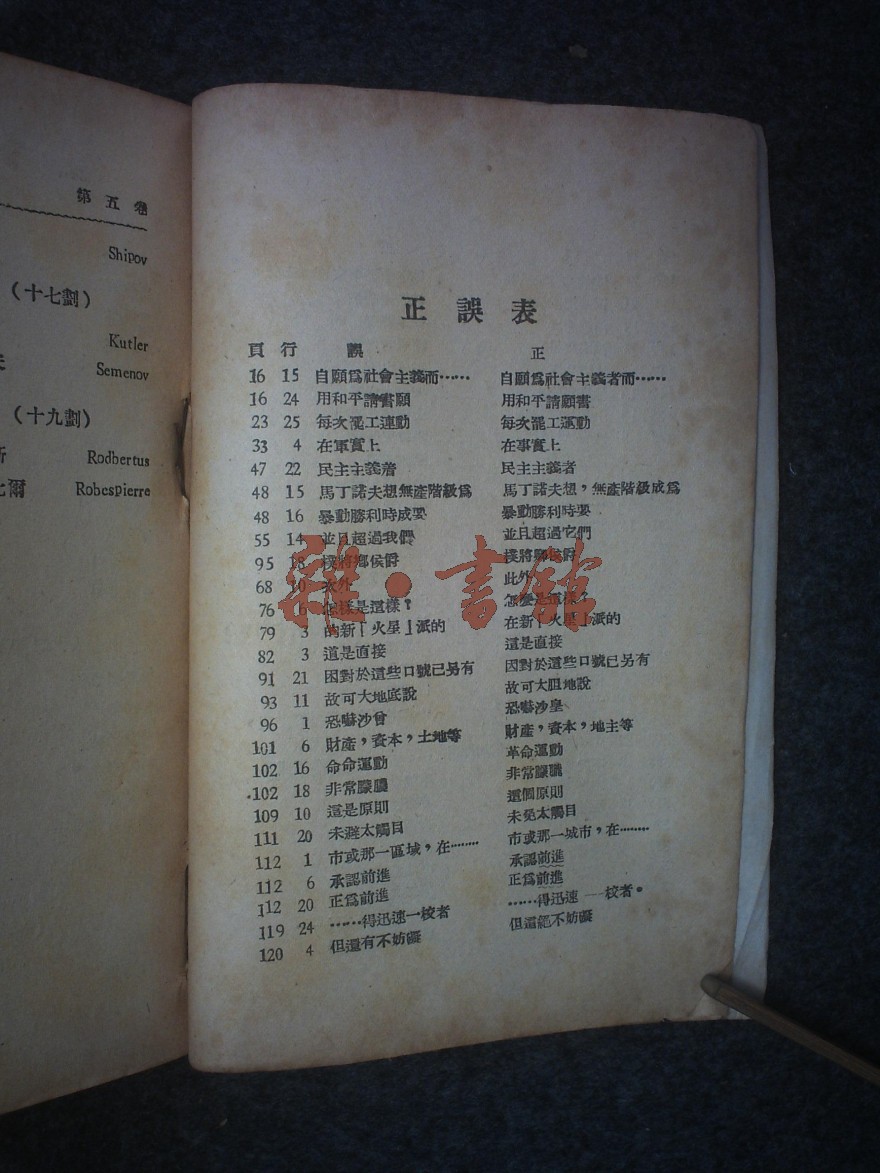 第五卷
Shipov
(十七劃)
Kutler
Semenov
(十九劃)
Rodbertus
比爾 Robespierre
正誤表
頁 行 誤 正
16 15 自願爲社會主義而…… 自願爲社會主義者而……
16 24 用和平請書願 用和平請願書
23 25 每次罷工連動 每次罷工運動
33 4 在軍實上 在事實上
47 22 民主主義着 民主主義者
48 15 馬丁諾夫想無產階級爲 馬丁諾夫想，無產階級成爲
48 16 暴動勝利時成要 暴動勝利時要
55 14 並且超過我們 並且超過它們
95 18 樸將鄉侯爵 樸將鄉侯爵
68 10 次外 此外
76 6 怎樣是這樣？ 怎麼是這樣？
79 3 的新「火星」派的 在新「火星」派的
82 3 這是直接 這是直接
91 21 因對於這些口號已另有 因對於這些口號已另有
93 11 故可大地底說 故可大胆地說
96 1 恐嚇沙曾 恐嚇沙皇
101 6 財產，資本，土地等 財產，資本，地主等
102 16 命命運動 革命運動
102 18 非常朦朧 非常朦朧
109 10 這是原則 這個原則
111 20 未 太觸目 未免太觸目
112 1 市或那一區域，在…… 市或那一城市，在……
112 6 承認前進 承認前進
112 20 正爲前進 正爲前進
119 24 ……得迅速一校者 ……得迅速 一校者。
120 4 但還有不妨礙 但這絕不妨礙
雜·書館